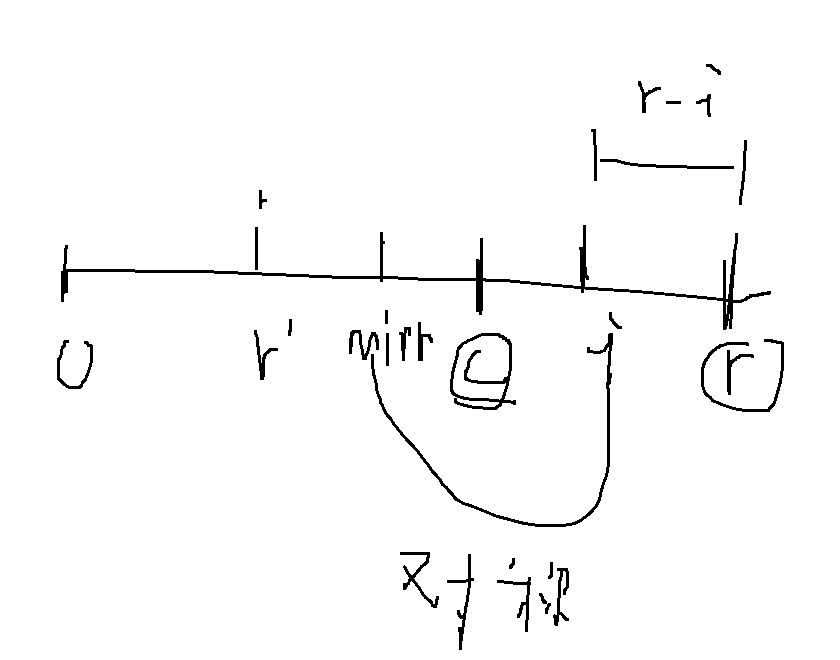 r-i
0 r' mirr c i r
对称